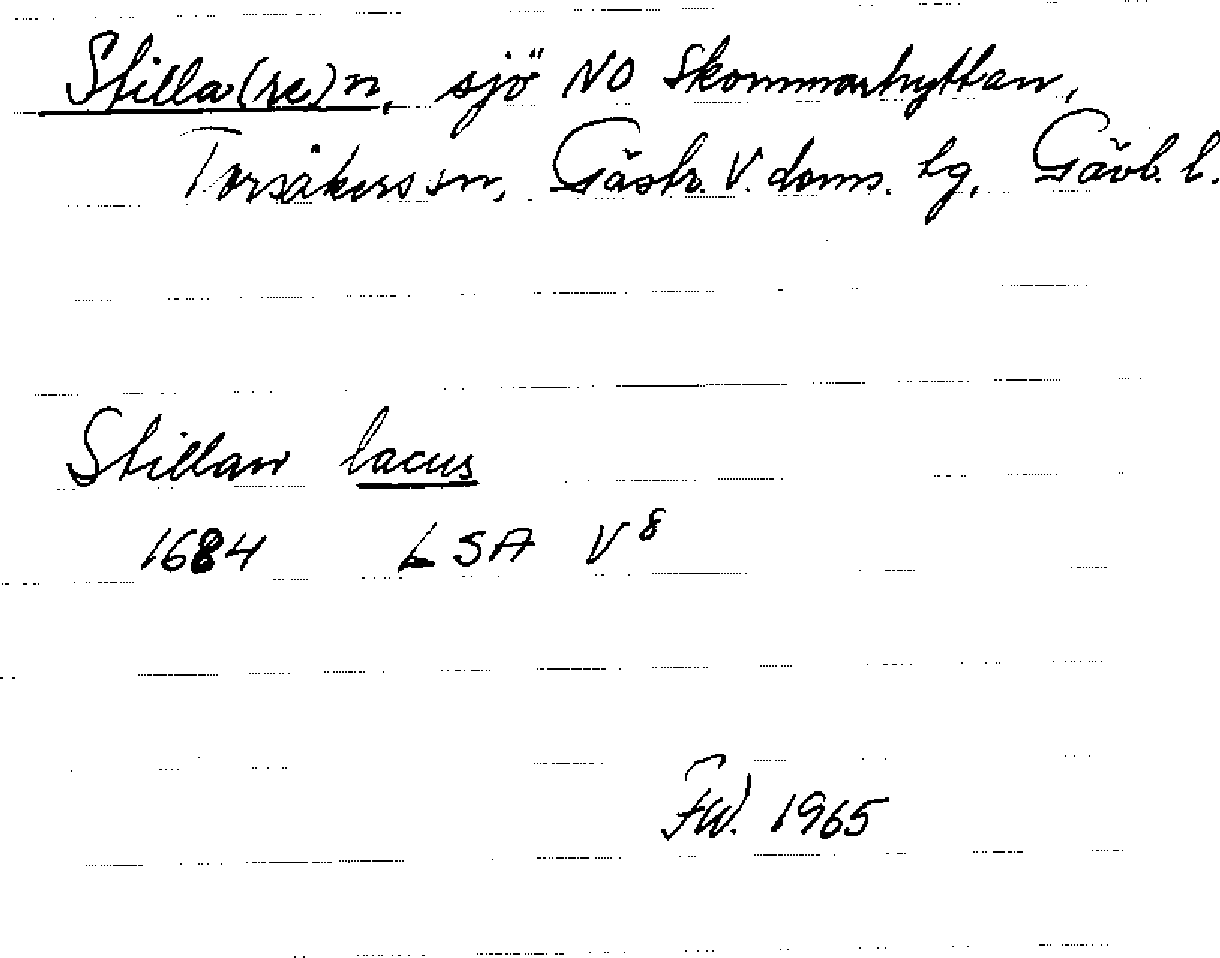 Stilla(re)n, sjö NO Skommarhyttan,
Torsåkers sn, Gästr. V. doms. lg, Gävl. l.
Stillan lacus
1684 LSA V8
FW. 1965